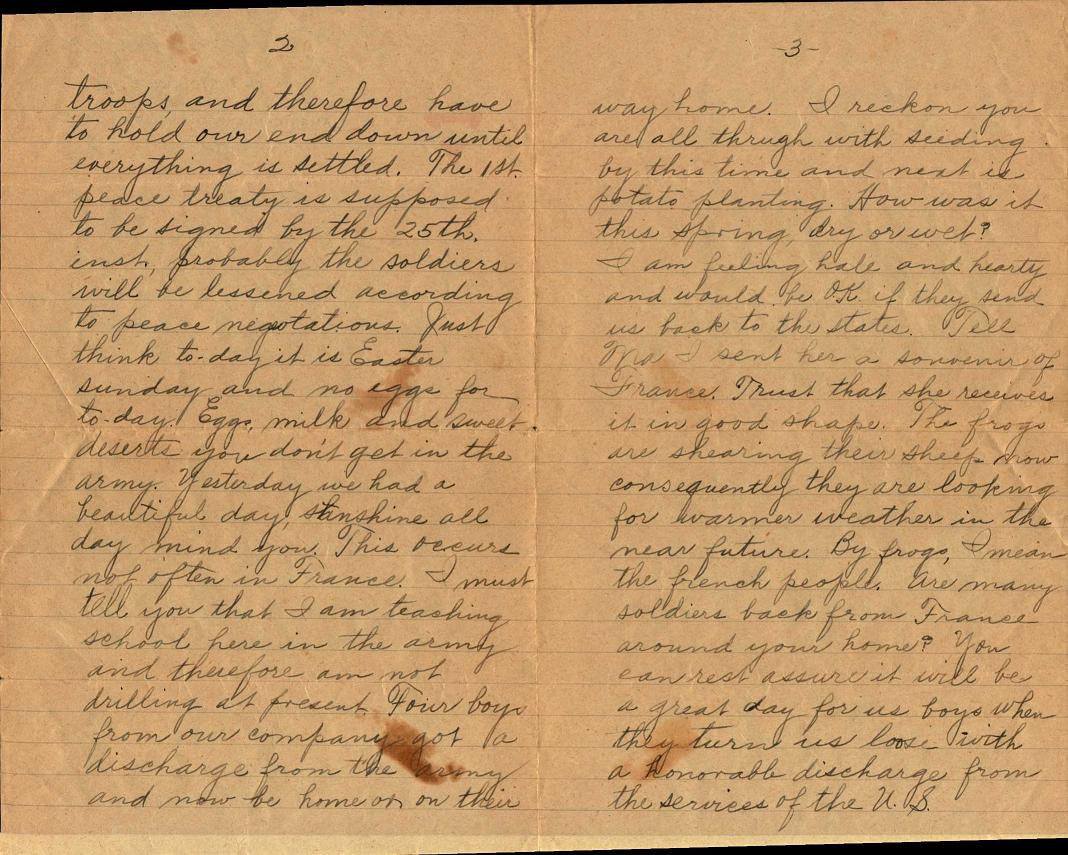 2
troops, and therefore have
to hold our end down until
everything is settled. The 1st.
peace treaty is supposed
to be signed by the 25th.
inst., probably the soldiers
will be lessened according
to peace negotations. Just
think to-day it is Easter
sunday and no eggs for
to-day. Eggs, milk and sweet
deserts you don't get in the
army. Yesterday we had a
beautiful day, sunshine all
day mind you. This occurs
not often in France. I must
tell you that I am teaching
school here in the army
and therefore am not
drilling at present Four boys
from our company got a
discharge from the army
and now be home or on their
-3-
way home. I reckon you
are all thrugh with seeding
by this time and next is
potato planting. How was it
this spring, dry or wet?
I am feeling hale and hearty
and would be OK if they send
us back to the states. Tell
Ma I sent her a souvenir of
France. Trust that she receives
it in good shape. The frogs
are shearing their sheep now
consequently they are looking
for warmer weather in the
near future. By frogs, I mean
the french people. Are many
soldiers back from France
around your home? You
can rest assure it will be
a great day for us boys when
they turn us loose with
a honorable discharge from
the services of the U.S.